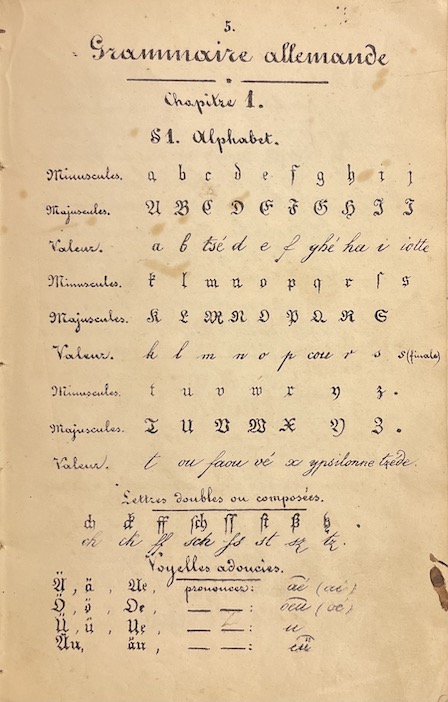 5.
Grammaire allemande
Chapitre 1.
§ 1. Alphabet.
Minuscules. a b c d e f g h i j
Majuscules. A B C D E F G H I J
Valeur. a b tsé d e f ghé ha i iotte
Minuscules. k l m n o p q r ſ s
Majuscules. K L M N O P Q R S
Valeur. k l m n o p cou r s s (finale)
Minuscules. t u v w x y z.
Majuscules. T U V W X Y Z.
Valeur. t ou faou vé x ypsilonne tzède.
Lettres doubles ou composées.
ch ck ff ſch ſſ ſt ß tz.
ch ck ff sch ss st sz tz.
Voyelles adoucies.
Ä, ä, Ae, prononcez: aé (aé)
Ö, ö, Oe, — — : oeu (oé)
Ü, ü, Ue, — — : u
Äu, äu, — — : eü